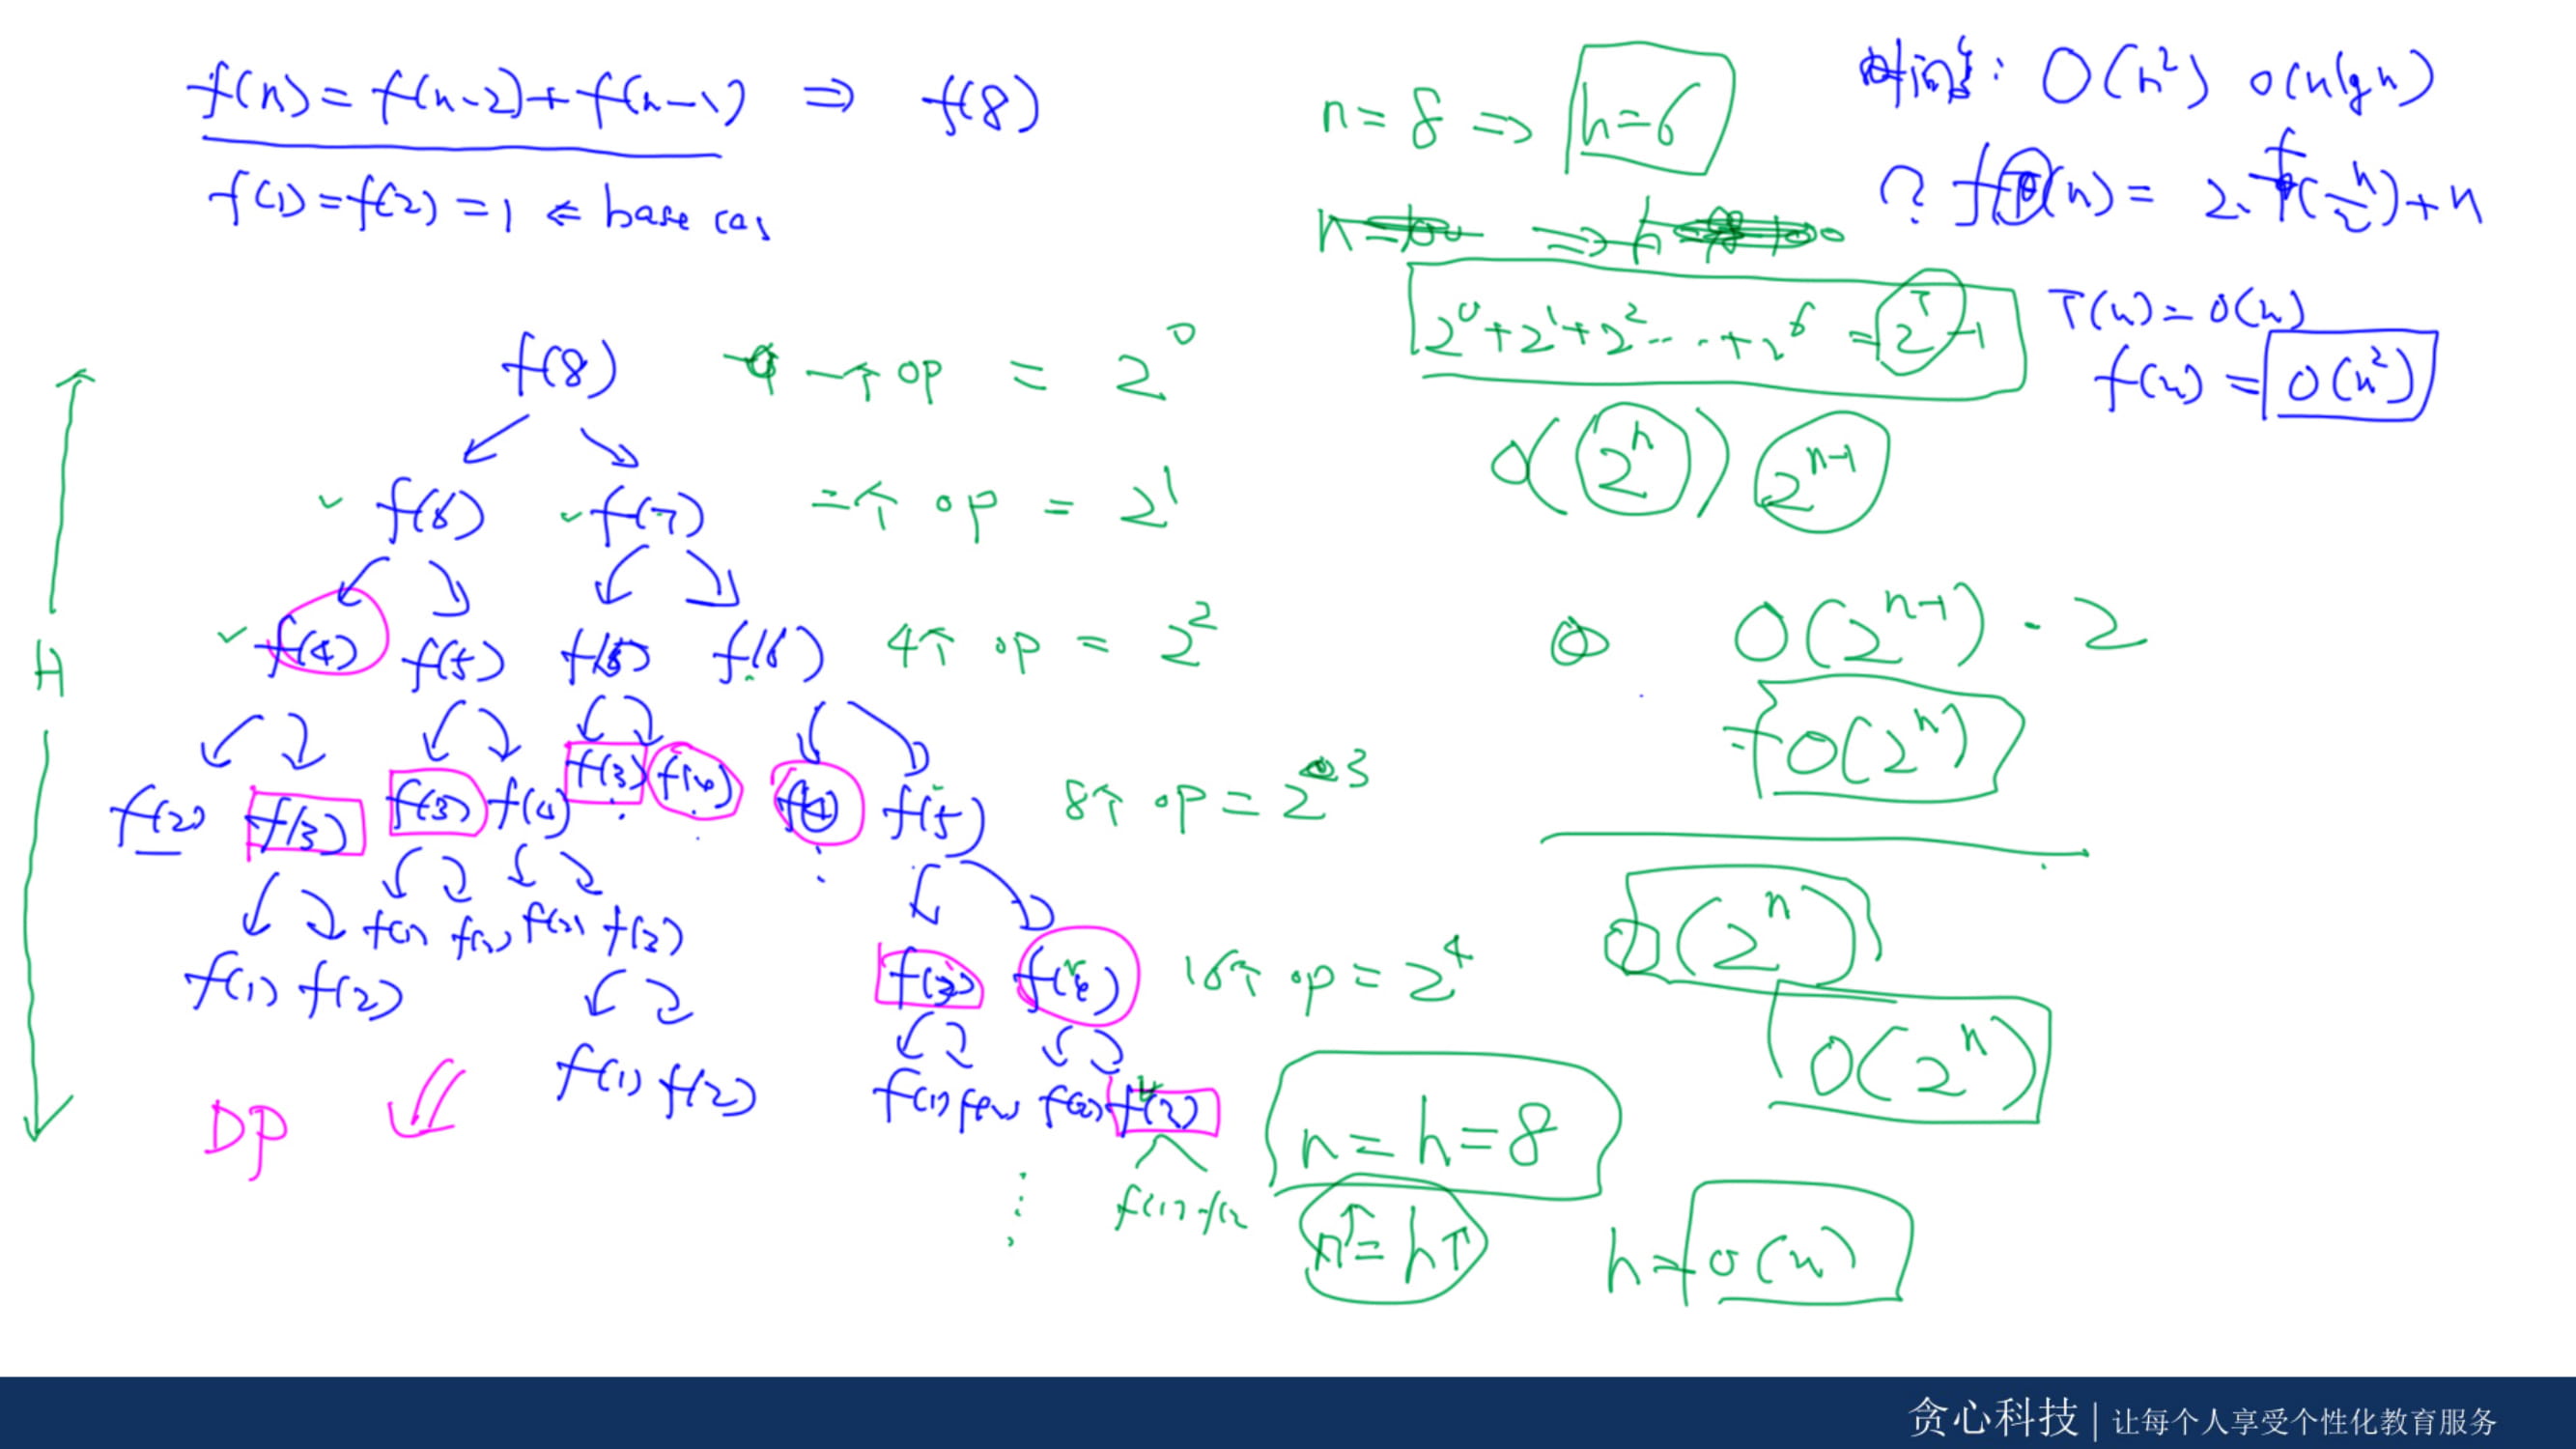 f(n) = f(n-2) + f(n-1) ⇒ f(8)
f(1) = f(2) = 1 ⇐ base cas
f(8) 一个 op = 2^0
f(6) f(7) 二个 op = 2^1
f(4) f(5) f(5) f(6) 4个 op = 2^2
f(2) f(3) f(3) f(4) f(3) f(4) f(4) f(5) 8个 op = 2^3
f(1) f(2) f(2) f(3)
f(1) f(2) f(3) f(4) 16个 op = 2^4
f(1) f(2) f(1) f(2) f(2) f(3)
f(1) f(2
H
DP
n = 8 ⇒ h=6
2^0 + 2^1 + 2^2 ... + 2^6 = 2^7 - 1
O(2^n) 2^(n-1)
O(2^(n-1)) · 2
= O(2^n)
O(2^n)
O(2^n)
n = h = 8
n↑ = h↑
h = O(n)
O(n^2) O(n lg n)
? f(n) = 2·f(n/2) + n
T(n) = O(n)
f(n) = O(n^2)
贪心科技 | 让每个人享受个性化教育服务